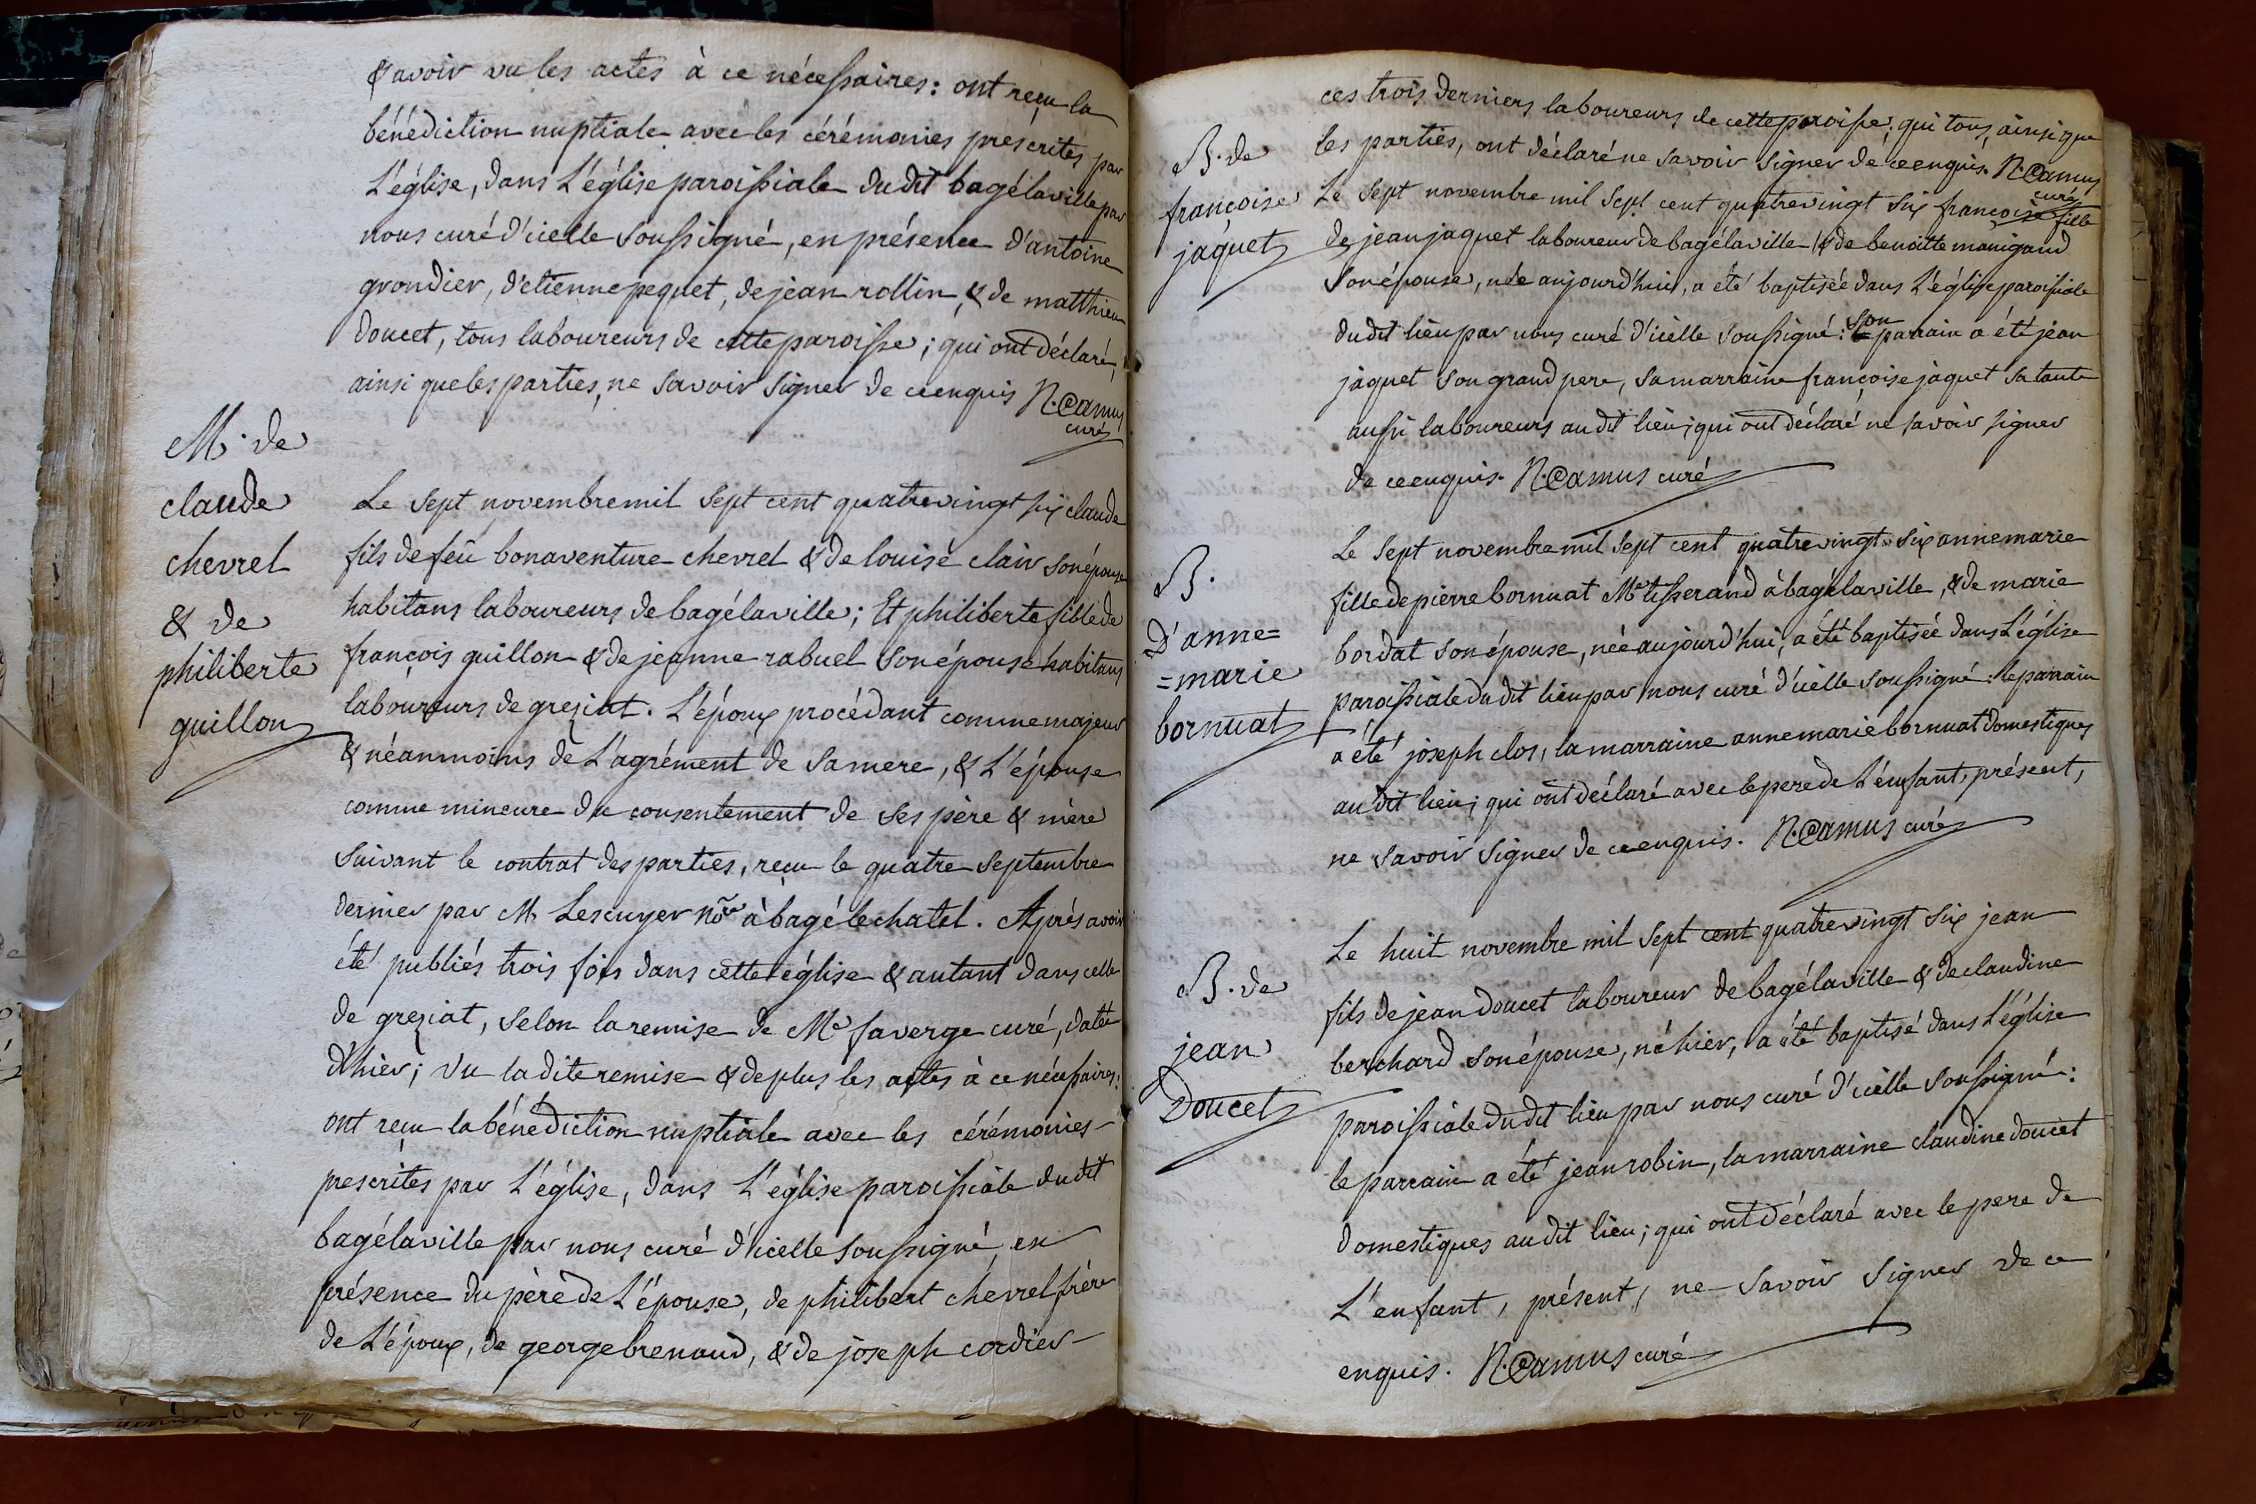 & avoir vu les actes à ce nécessaires: ont reçu la
bénédiction nuptiale avec les cérémonies prescrites par
L'église, dans L'église paroissiale dudit bagélaville par
nous curé d'icelle soussigné, en présence d'antoine
grondier, d'etienne pequet, de jean rollin, & de matthieu
doucet, tous laboureurs de cette paroisse; qui ont déclaré,
ainsi que les parties, ne savoir signer de ce enquis N. Camus
curé
M. de
claude
chevrel
& de
philiberte
guillon
Le sept novembre mil sept cent quatrevingt six claude
fils de feû bonaventure chevrel & de louise clair son épouse
habitans laboureurs de bagélaville; Et philiberte fille de
françois guillon & de jeanne rabuel son épouse habitans
laboureurs de greziat. L'époux procédant comme majeur
& néanmoins de L'agrément de sa mere, & L'épouse
comme mineure du consentement de ses père & mère
suivant le contrat des parties, reçu le quatre septembre
dernier par Me Lescuyer Nõre à bagélechatel. Après avoir
été publiés trois fois dans cette église & autant dans celle
de greziat, selon la remise de Me faverge curé, datée
d'hier; Vu la dite remise & de plus les actes à ce nécessaires:
ont reçu la bénédiction nuptiale avec les cérémonies
prescrites par L'église, dans L'église paroissiale dudit
bagélaville par nous curé d'icelle soussigné, en
présence du père de L'épouse, de philibert chevrel frère
de L'époux, de george brenaud, & de joseph cordier
ces trois derniers laboureurs de cette paroisse; qui tous, ainsi que
les parties, ont déclaré ne savoir signer de ce enquis. N. Camus
curé
B. de
françoise
jaquet
Le sept novembre mil sept cent quatrevingt six françoise fille
de jean jaquet laboureur de bagélaville & de benoitte manigand
son épouse, née aujourd'hui, a été baptisée dans L'église paroissiale
dudit lieu par nous curé d'icelle soussigné: son parrain a été jean
jaquet son grand pere, sa marraine françoise jaquet sa tante
aussi laboureurs audit lieu; qui ont déclaré ne savoir signer
de ce enquis. N. Camus curé
B.
D'anne=
=marie
bornuat
Le sept novembre mil sept cent quatrevingt six annemarie
fille de pierre bornuat Me tisserand à bagélaville, & de marie
bordat son épouse, née aujourd'hui, a été baptisée dans L'église
paroissiale dudit lieu par nous curé d'icelle soussigné: le parrain
a été joseph clos, la marraine annemarie bornuat domestiques
audit lieu; qui ont déclaré avec le pere de L'enfant, présent,
ne savoir signer de ce enquis. N. Camus curé
B. de
jean
Doucet
Le huit novembre mil sept cent quatrevingt six jean
fils de jean doucet laboureur de bagélaville & de claudine
berchard son épouse, né hier, a été baptisé dans L'église
paroissiale dudit lieu par nous curé d'icelle soussigné:
le parrain a été jean robin, la marraine claudine doucet
domestiques audit lieu; qui ont déclaré avec le pere de
L'enfant, présent, ne savoir signer de ce
enquis. N. Camus curé